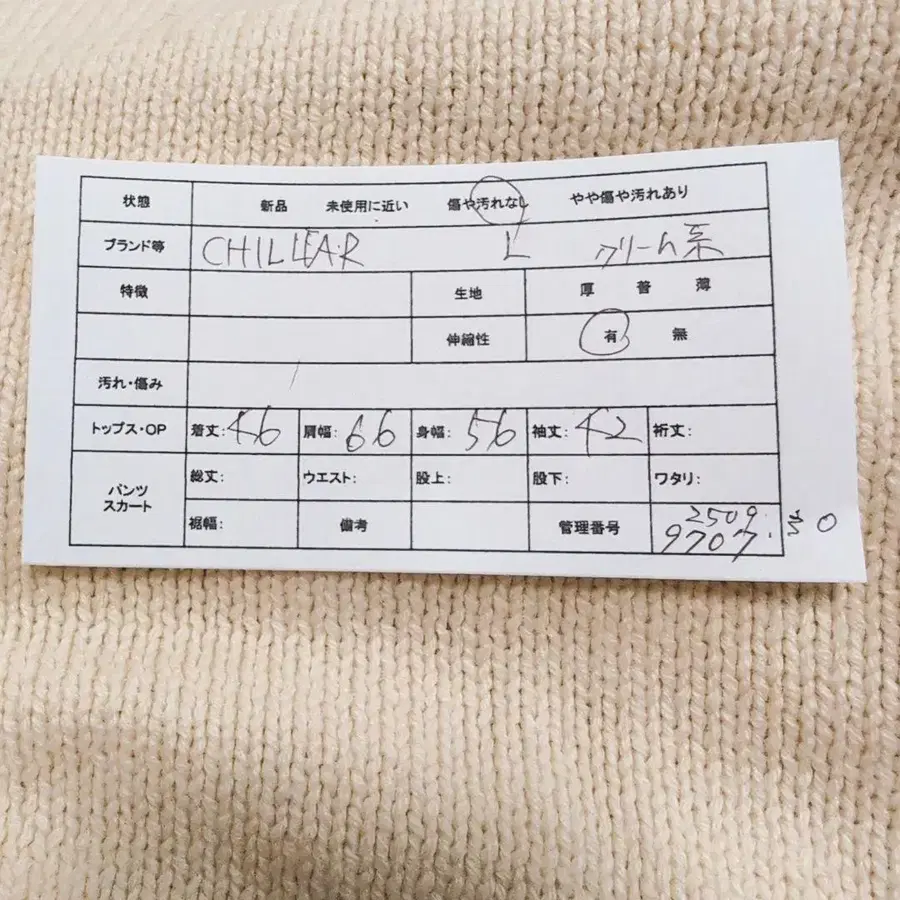 状態 新品 未使用に近い 傷や汚れなし やや傷や汚れあり
ブランド等 CHILLEAR L クリーム系
特徴 生地 厚 普 薄
伸縮性 有 無
汚れ・傷み
トップス・OP 着丈:46 肩幅:66 身幅:56 袖丈:42 裄丈:
パンツ スカート 総丈: ウエスト: 股上: 股下: ワタリ:
裾幅: 備考 管理番号 2509.
9707.